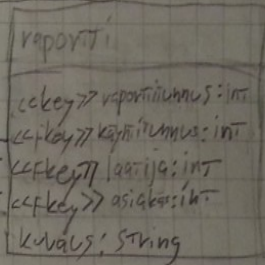 raportti
<<key>> raporttitunnus: int
<<fkey>> käyttitunnus: int
<<fkey>> laatija: int
<<fkey>> asiakas: int
kuvaus: string